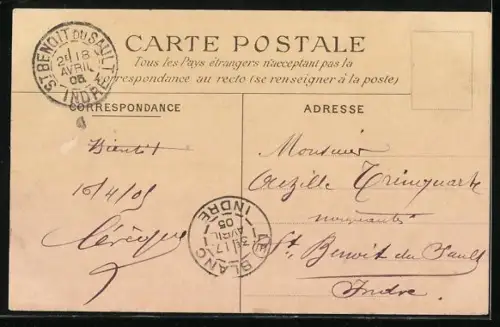 CARTE POSTALE
Tous les Pays étrangers n'acceptant pas la
correspondance au recto (se renseigner à la poste)
CORRESPONDANCE
ADRESSE
St BENOIT DU SAULT
18
AVRIL
05
INDRE
Bientôt
16/4/05
LE BLANC
17
AVRIL
05
INDRE
Monsieur
St Benoit du Sault
Indre